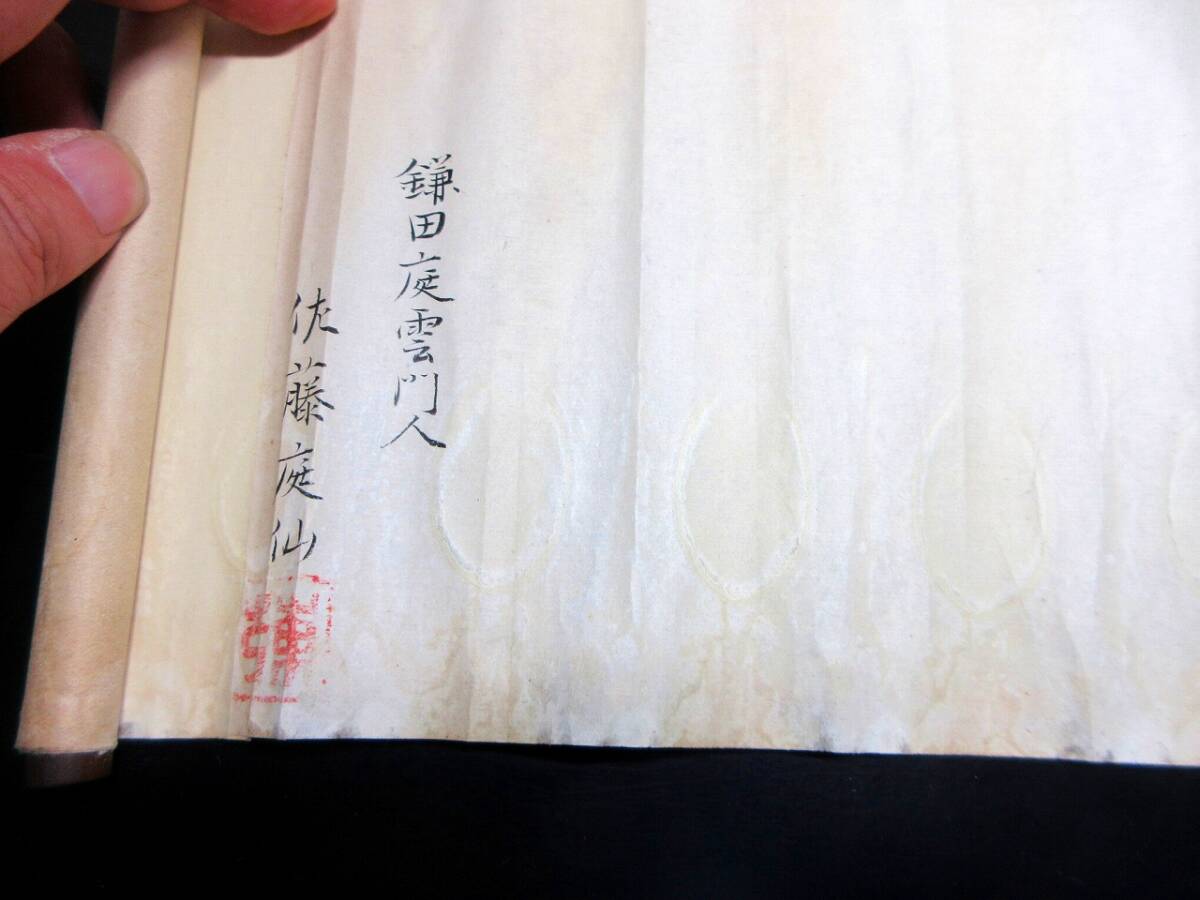 鎌田庭雲門人
佐藤庭仙